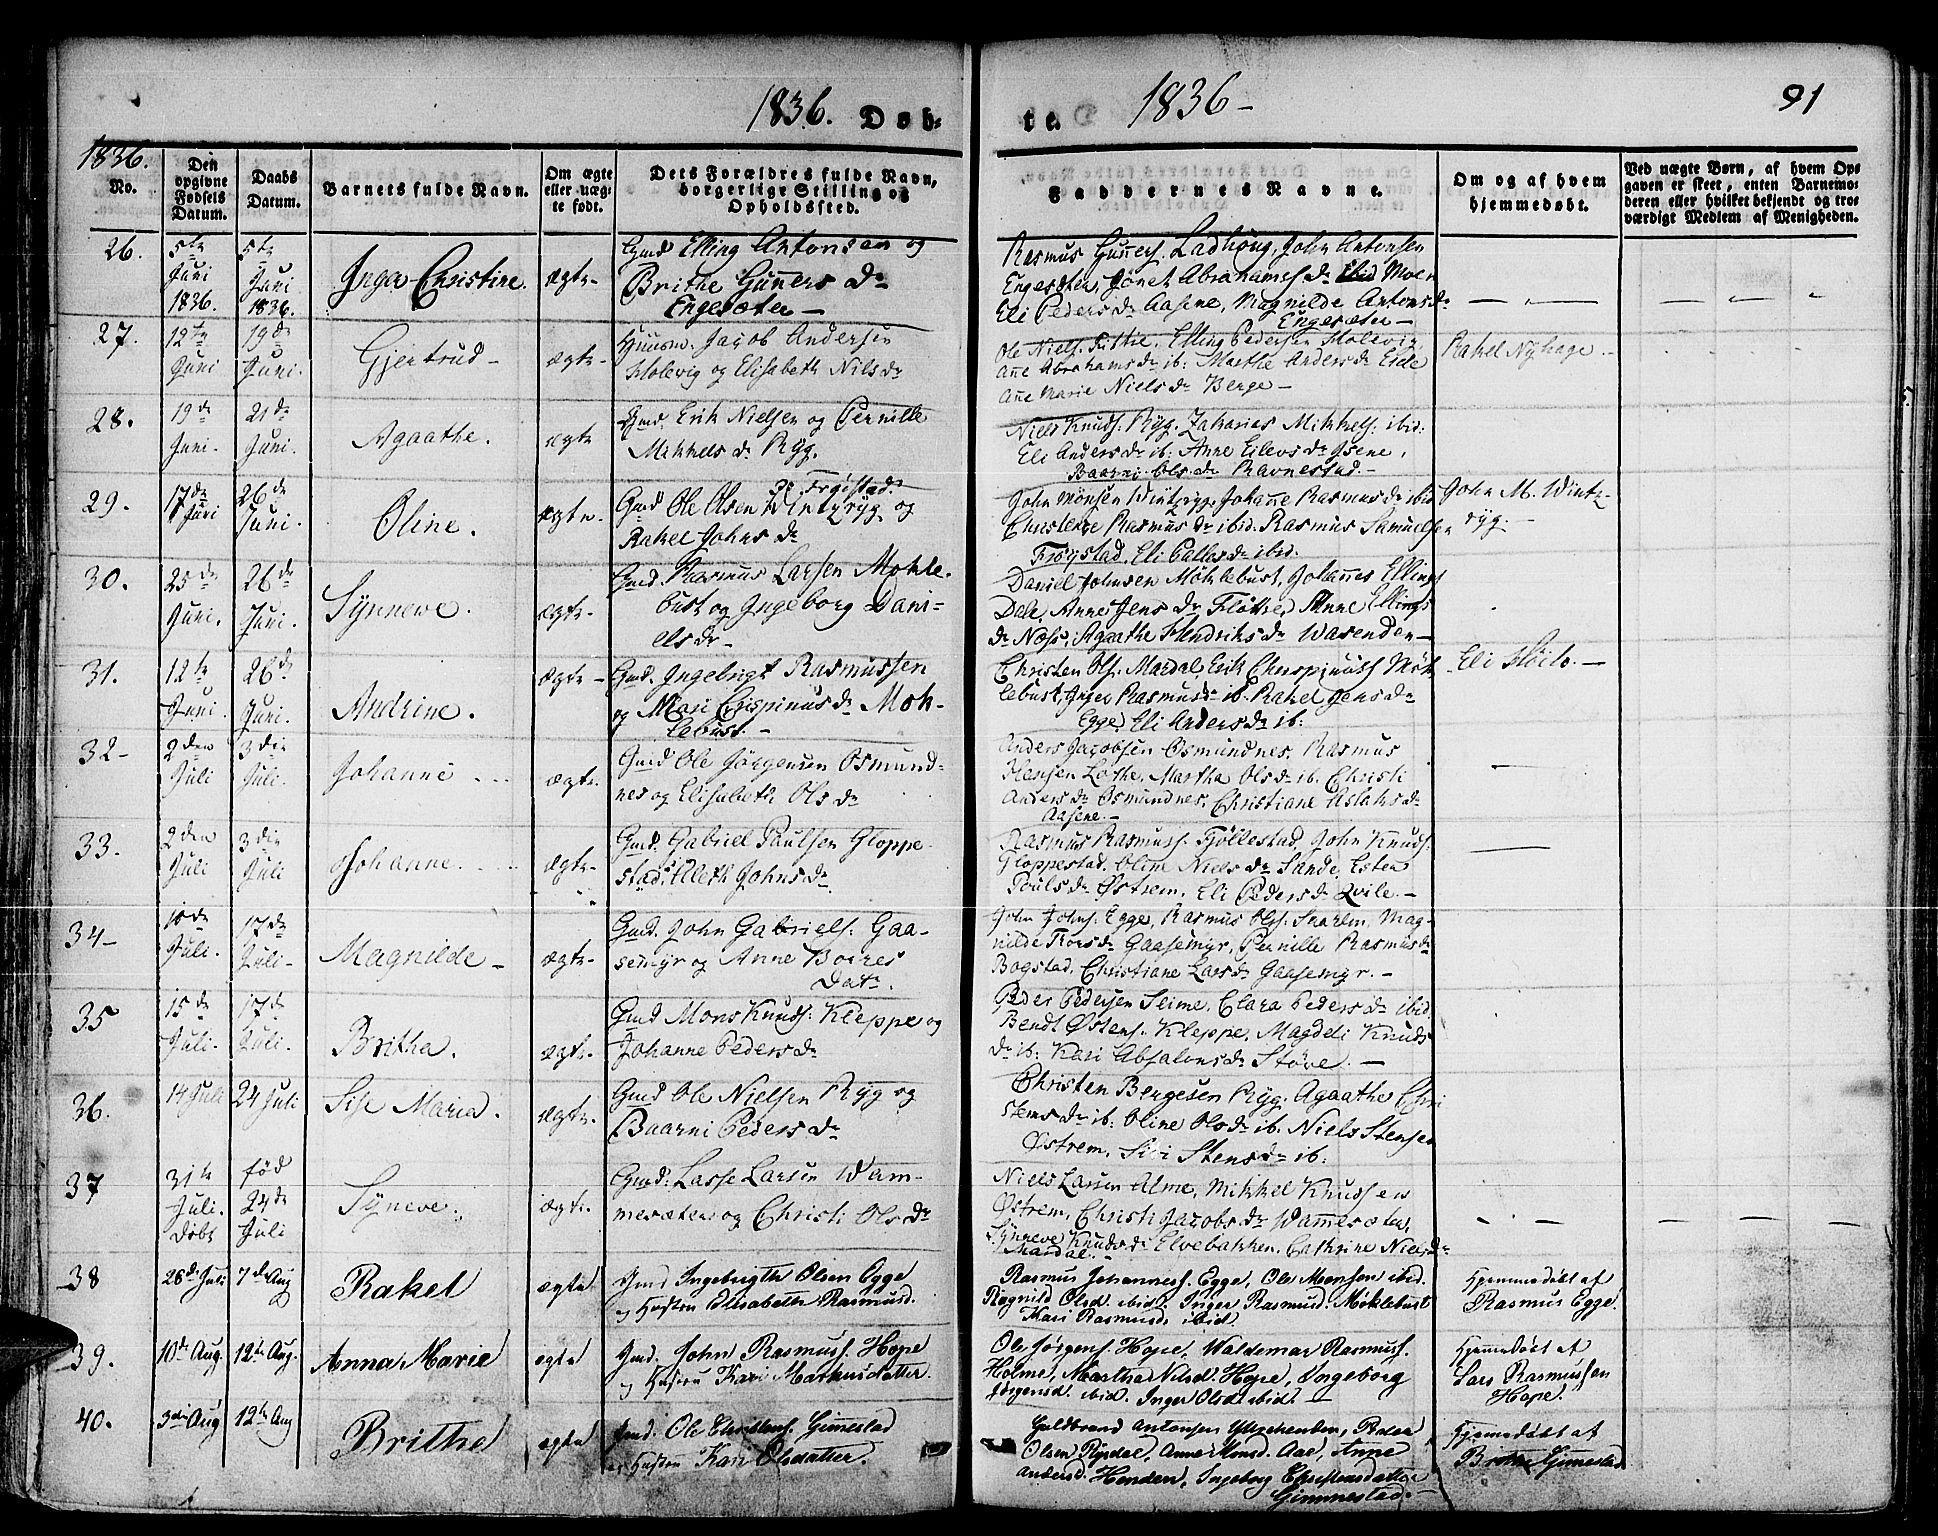 1836. Døb-
te. 1836- 91
1836.
No.
Den
opgivne
Fødsels
Datum.
Daabs
Datum.
Barnets fulde Navn.
Om ægte
eller uæg-
te født.
Dets Forældres fulde Navn,
borgerlige Stilling og
Opholdssted.
Faddernes Navne.
Om og af hvem
hjemmedøbt.
Ved uægte Børn, af hvem Op-
gaven er skeet, enten Barnemo-
deren eller hvilket bekjendt og tro-
værdigt Medlem af Menigheden.
26.
5te
Juni
1836.
5te
Juni
1836.
Inga Christine.
ægte-
Gmd Elling Antonsen og
Brithe Guners Dr
Engesæter -
Rasmus Guners. Ladhoug, John Antonsen
Engesæter, Jønet Abrahams dr ibid
Eli Peders dr Aasene, Magnilde Antons dr
Engesæter -
27.
12te
Juni
19de
Juni.
Gjertrud -
ægte-
Huusm. Jacob Andersen
Holevig og Elisabeth Nils dr
Ole Niels. Elling Pedersen Holevig
Ane Abrahams dr ib: Marthe Anders dr Eide
Ane Marie Niels dr Berge -
Rakel Nyhage. -
28.
19de
Juni.
21de
Juni.
Agaathe.
ægte
Gmd. Erik Nielsen og Pernille
Mikkels dr Ryg.
Niels Knuds. Ryg. Zakarias Mikkels: ibid:
Eli Anders dr ib: Anne Eilevs dr
Baarni Ols dr Ravnestad. -
29.
17de
Juni
26de
Juni.
Oline.
ægte.
Frøistad.
Gmd Ole Olsen Wintzryg og
Rakel Johns dr
John Monsen Wintzryg. Johane Rasmus dr ibid
Rasmus dr ibid. Rasmus Samuelsen
Frøystad, Eli Palles dr ibid.
John M. Wintz-
ryg. -
30.
25de
Juni.
26de
Juni.
Synneve.
ægte-
Gmd. Rasmus Larsen Mokle-
bust og Ingeborg Dani-
els dr -
Daniel Johnsen Møklebust, Johannes Ellings
Dale, Anne Jens dr Fløtte, Anne Ellings
dr Næss, Agaathe Hendriks dr Warenden -
31.
12te
Juni.
26de
Juni.
Andrine.
ægte -
Gmd. Ingebrigt Rasmussen
og Mari Crispinus dr Mok-
lebust. -
Christen Ols. Mardal, Erik Møk-
lebust, Inger Rasmus dr ib. Rakel Jens dr
Egge, Eli Anders dr ib:
Eli -
32-
2den
Juli
3die
Juli.
Johanne
ægte.
Gmd Ole Jørgensen Osmund-
nes og Elisabeth Ols dr
Anders Jacobsen Osmundnes, Rasmus
Hansen Lothe, Martha Ols dr ib. Christi
Anders dr Osmundnes, Christiane Aslaks dr
Aasene. -
33.
2den
Juli
3die
Juli
Johanne.
ægte-
Gmd. Gabriel Paulsen Gloppe-
stad, Elleth Johns dr.
Rasmus Rasmuss. Fjøllestad, John Knuds.
Gloppestad, Oline Niels dr Sande, Ester
Pouls dr Østrem, Eli Peders dr Qvile. -
34-
10de
Juli.
17de
Juli-
Magnilde -
ægte-
Gmd. John Gabriels: Gaa-
semyr og Anne
Datr.
John Johns. Egge, Rasmus Ols. Mag-
nilde Tors dr Gaasemyr, Pernille Rasmus dr
Bogstad, Christiane Lars dr Gaasemyr. -
35
15de
Juli.
17de
Juli.
Britha.
ægte-
Gmd Mons Knuds. Kleppe og
Johanne Peders dr
Peder Pedersen Seime, Clara Peders dr ibid.
Bendt Østens. Kleppe, Magdeli Knuds
dr ib: Kari Absalons dr Støve. -
36.
14 Juli
24 Juli
Sise Maria.
ægte.
Gmd Ole Nielsen Ryg og
Baarni Peders dr
Christen Børgesen Ryg, Agaathe Chri
stens dr ib: Oline Ols dr ib. Niels Stensen
Østrem, Sisi Stens dr ib:
37
31te
Juli.
Døbt
fød
24de
Juli
Syneve.
ægte.
Gmd: Lasse Larsen Wam-
mesæter og Christi Ols dr
Niels Larsen Alme, Mikkel Knudsen
Østrem, Christi Jacobs dr Wamesæter,
Synneve Knuds dr Elvebakken, Cathrine Niels dr
Mardal. -
38
28de Juli
7de Aug
Rakel
ægte
Gmd Ingebrigth Olsen Egge
og Hustru Elisabeth Rasmusd.
Rasmus Johanness. Egge, Ole Monsen ibid.
Ragnild Olsd. ibid. Inger Rasmusd. Møklebust
Kari Rasmusd. ibid.
Hjemmedøbt af
Rasmus Egge.
39.
10de Aug.
12te Aug.
Anna Marie
ægte
Gmd. John Rasmuss. Hope
og Hustru Kari Markusdatter.
Ole Jørgens. Hope, Waldemar Rasmuss.
Holme, Martha Nilsd. Hope, Ingeborg
Jørgensd. ibid. Inger Olsd. ibid. -
Hjemmedøbt af
Lars Rasmussen
Hope.
40.
3die Aug
12te Aug
Brithe
ægte
Gmd. Ole Christens. Gimmestad
og Hustru Kari Olsdatter.
Guldbrand Antonsen Ytrehenden, Peder
Olsen Rysdal, Anne Monsd. Aae, Anne
Andersd. Henden, Ingeborg Christensdatter
Gimmestad. -
Hjemmedøbt af
Brithe Gimmestad.